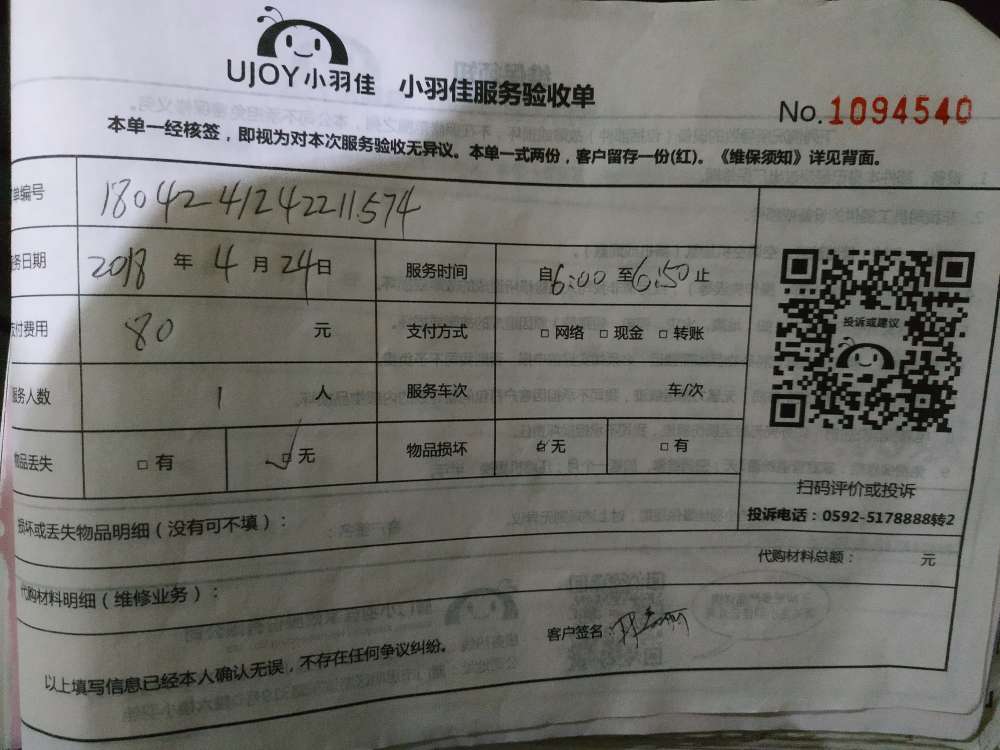 UJOY小羽佳 小羽佳服务验收单
No.1094540
本单一经核签，即视为对本次服务验收无异议。本单一式两份，客户留存一份(红)。《维保须知》详见背面。
单编号 1804241242211574
务日期 2018 年 4 月 24 日 服务时间 自 6:00 至 6:50 止
支付费用 80 元 支付方式 □ 网络 □ 现金 □ 转账
服务人数 1 人 服务车次 车/次
物品丢失 □ 有 ☑ 无 物品损坏 ☑ 无 □ 有
投诉或建议
扫码评价或投诉
投诉电话：0592-5178888转2
损坏或丢失物品明细（没有可不填）：
代购材料总额： 元
代购材料明细（维修业务）：
客户签名：
以上填写信息已经本人确认无误，不存在任何争议纠纷。